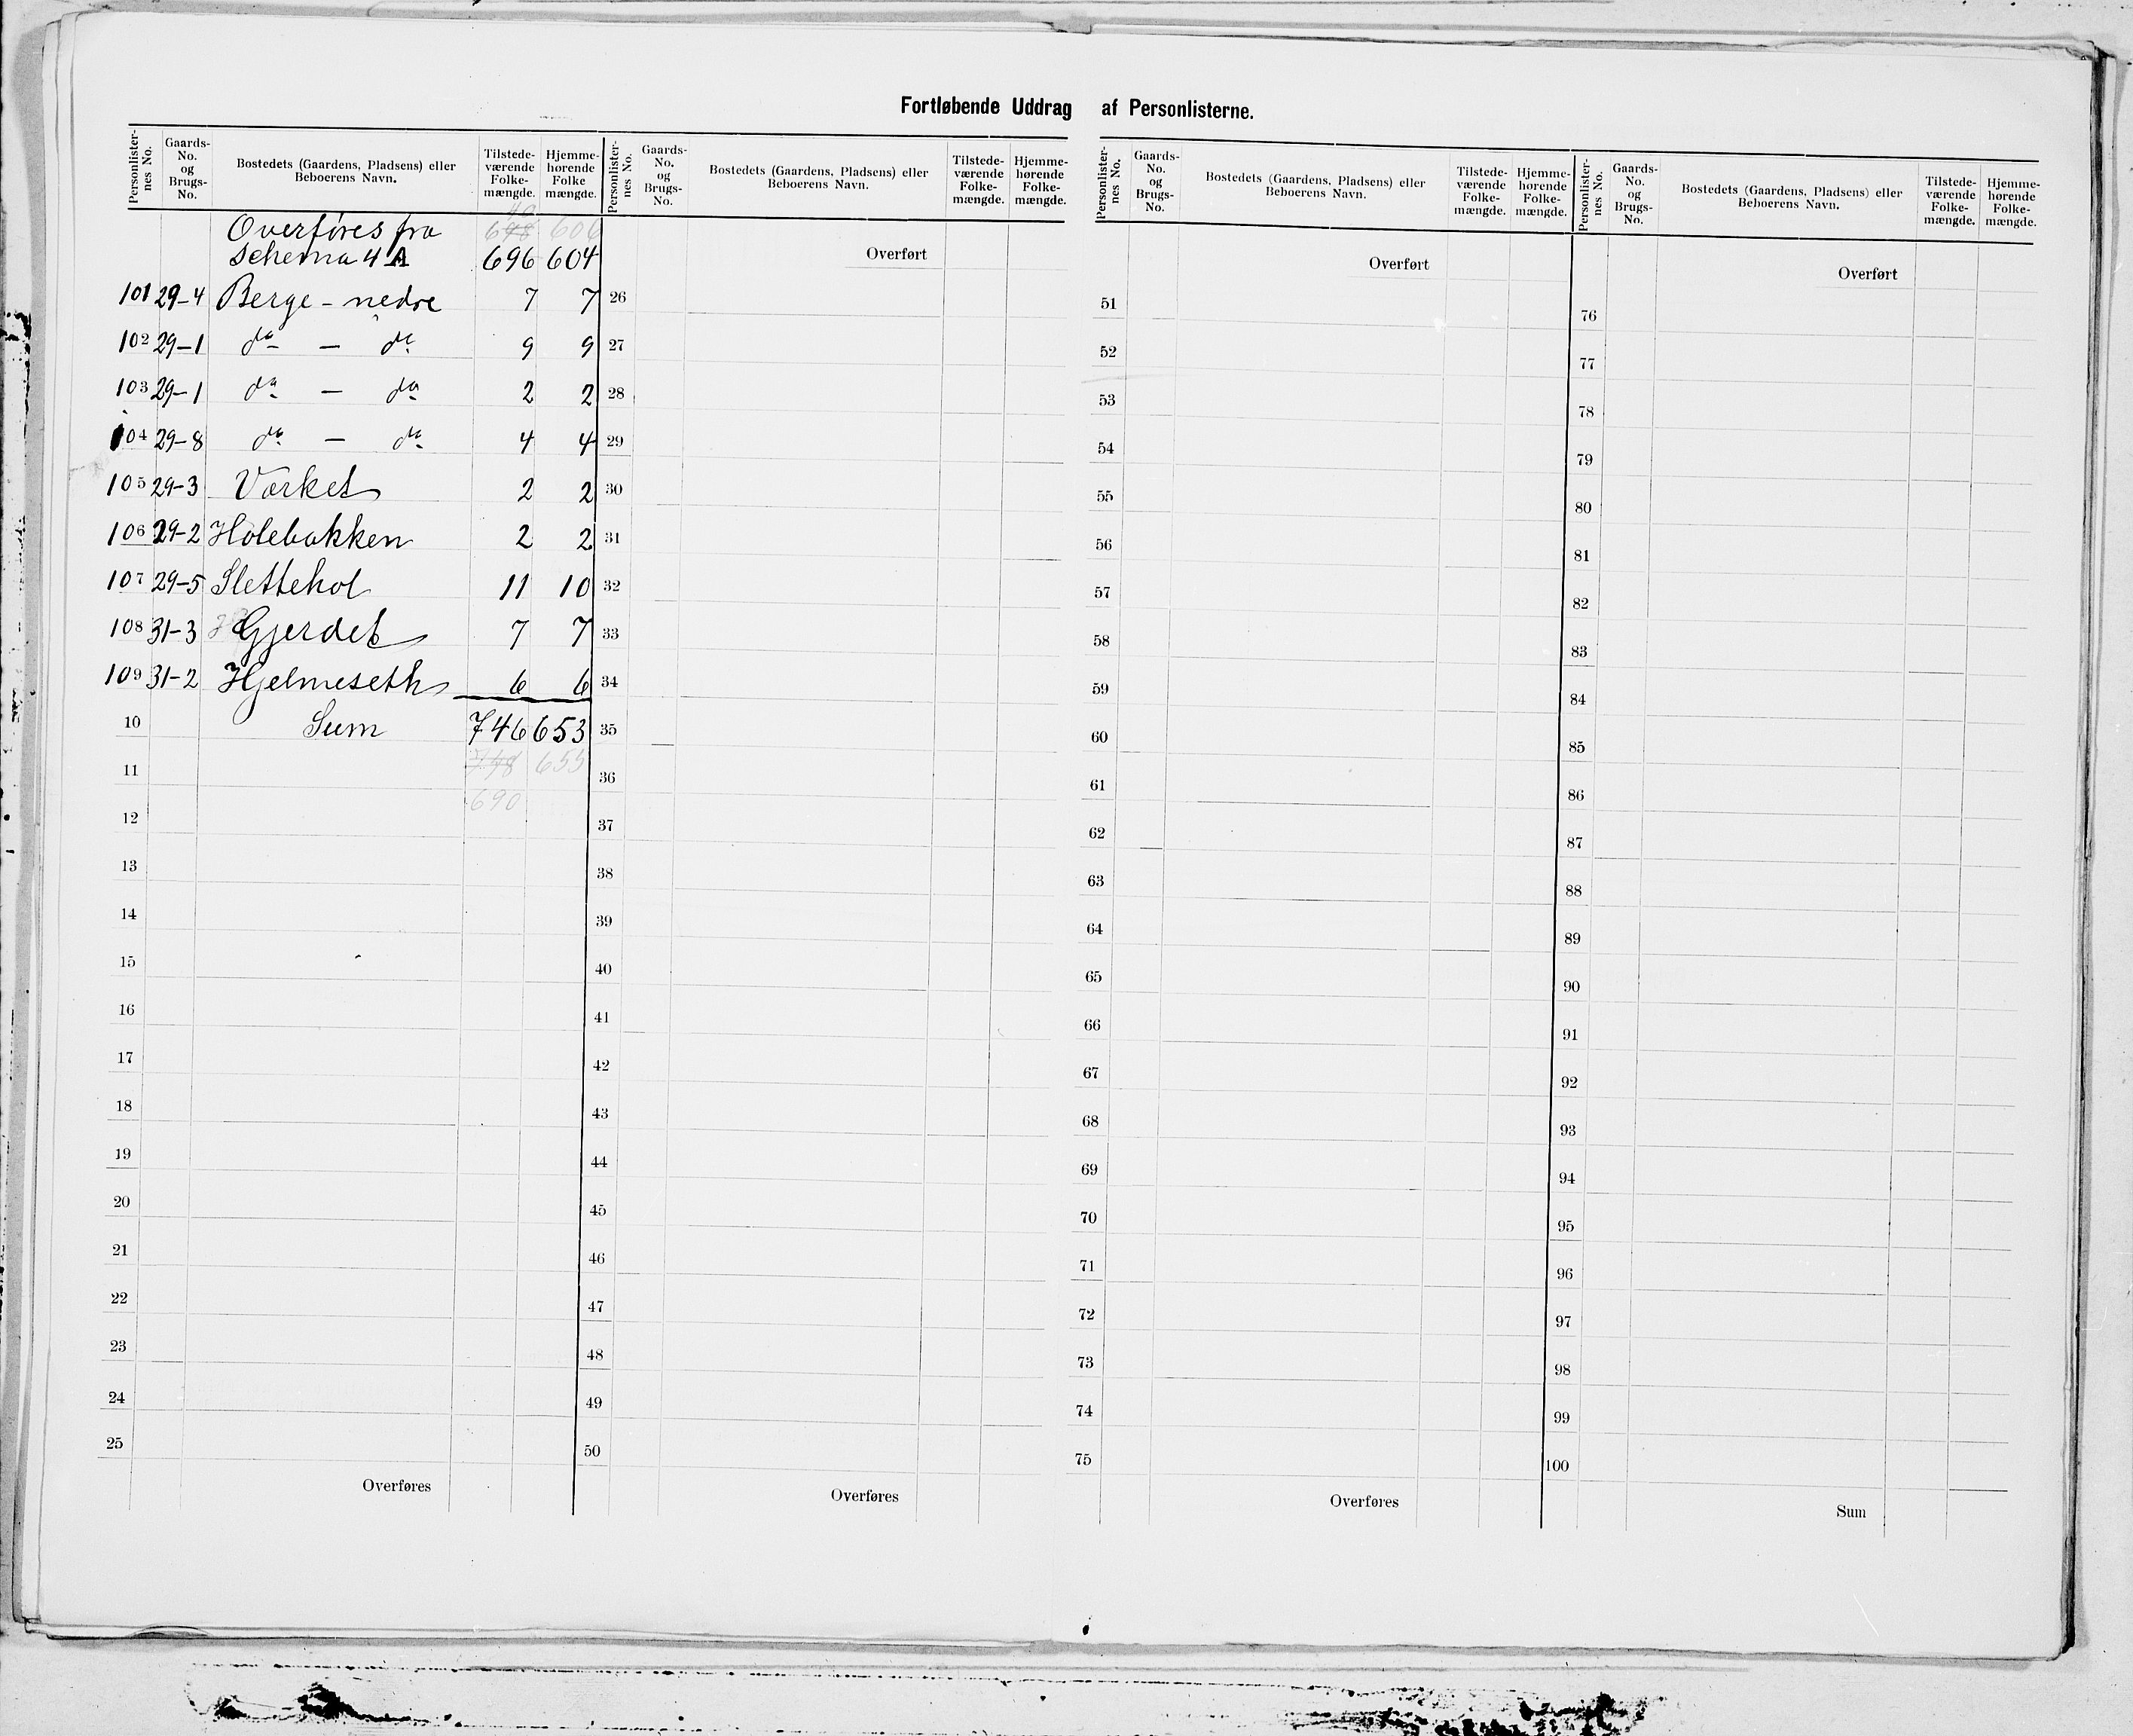 Fortløbende Uddrag af Personlisterne.
Personlister-nes No. | Gaards-No. og Brugs-No. | Bostedets (Gaardens, Pladsens) eller Beboerens Navn. | Tilstede-værende Folke-mængde. | Hjemme-hørende Folke mængde.
Overføres fra 698 606
Schema 4 A 696 604
101 29-4 Berge - nedre 7 7
102 29-1 do - do 9 9
103 29-1 do - do 2 2
104 29-8 do - do 4 4
105 29-3 Værket 2 2
106 29-2 Holebakken 2 2
107 29-5 Slettehol 11 10
108 31-3 Gjerdet 7 7
109 31-2 Hjelmeseth 6 6
10 Sum 746 653
11 748 655
690
12
13
14
15
16
17
18
19
20
21
22
23
24
25
Overføres
Personlister-nes No. | Gaards-No. og Brugs-No. | Bostedets (Gaardens, Pladsens) eller Beboerens Navn. | Tilstede-værende Folke-mængde. | Hjemme-hørende Folke-mængde.
Overført
26
27
28
29
30
31
32
33
34
35
36
37
38
39
40
41
42
43
44
45
46
47
48
49
50
Overføres
Personlister-nes No. | Gaards-No. og Brugs-No. | Bostedets (Gaardens, Pladsens) eller Beboerens Navn. | Tilstede-værende Folke-mængde. | Hjemme-hørende Folke-mængde.
Overført
51
52
53
54
55
56
57
58
59
60
61
62
63
64
65
66
67
68
69
70
71
72
73
74
75
Overføres
Personlister-nes No. | Gaards-No. og Brugs-No. | Bostedets (Gaardens, Pladsens) eller Beboerens Navn. | Tilstede-værende Folke-mængde. | Hjemme-hørende Folke-mængde.
Overført
76
77
78
79
80
81
82
83
84
85
86
87
88
89
90
91
92
93
94
95
96
97
98
99
100
Sum